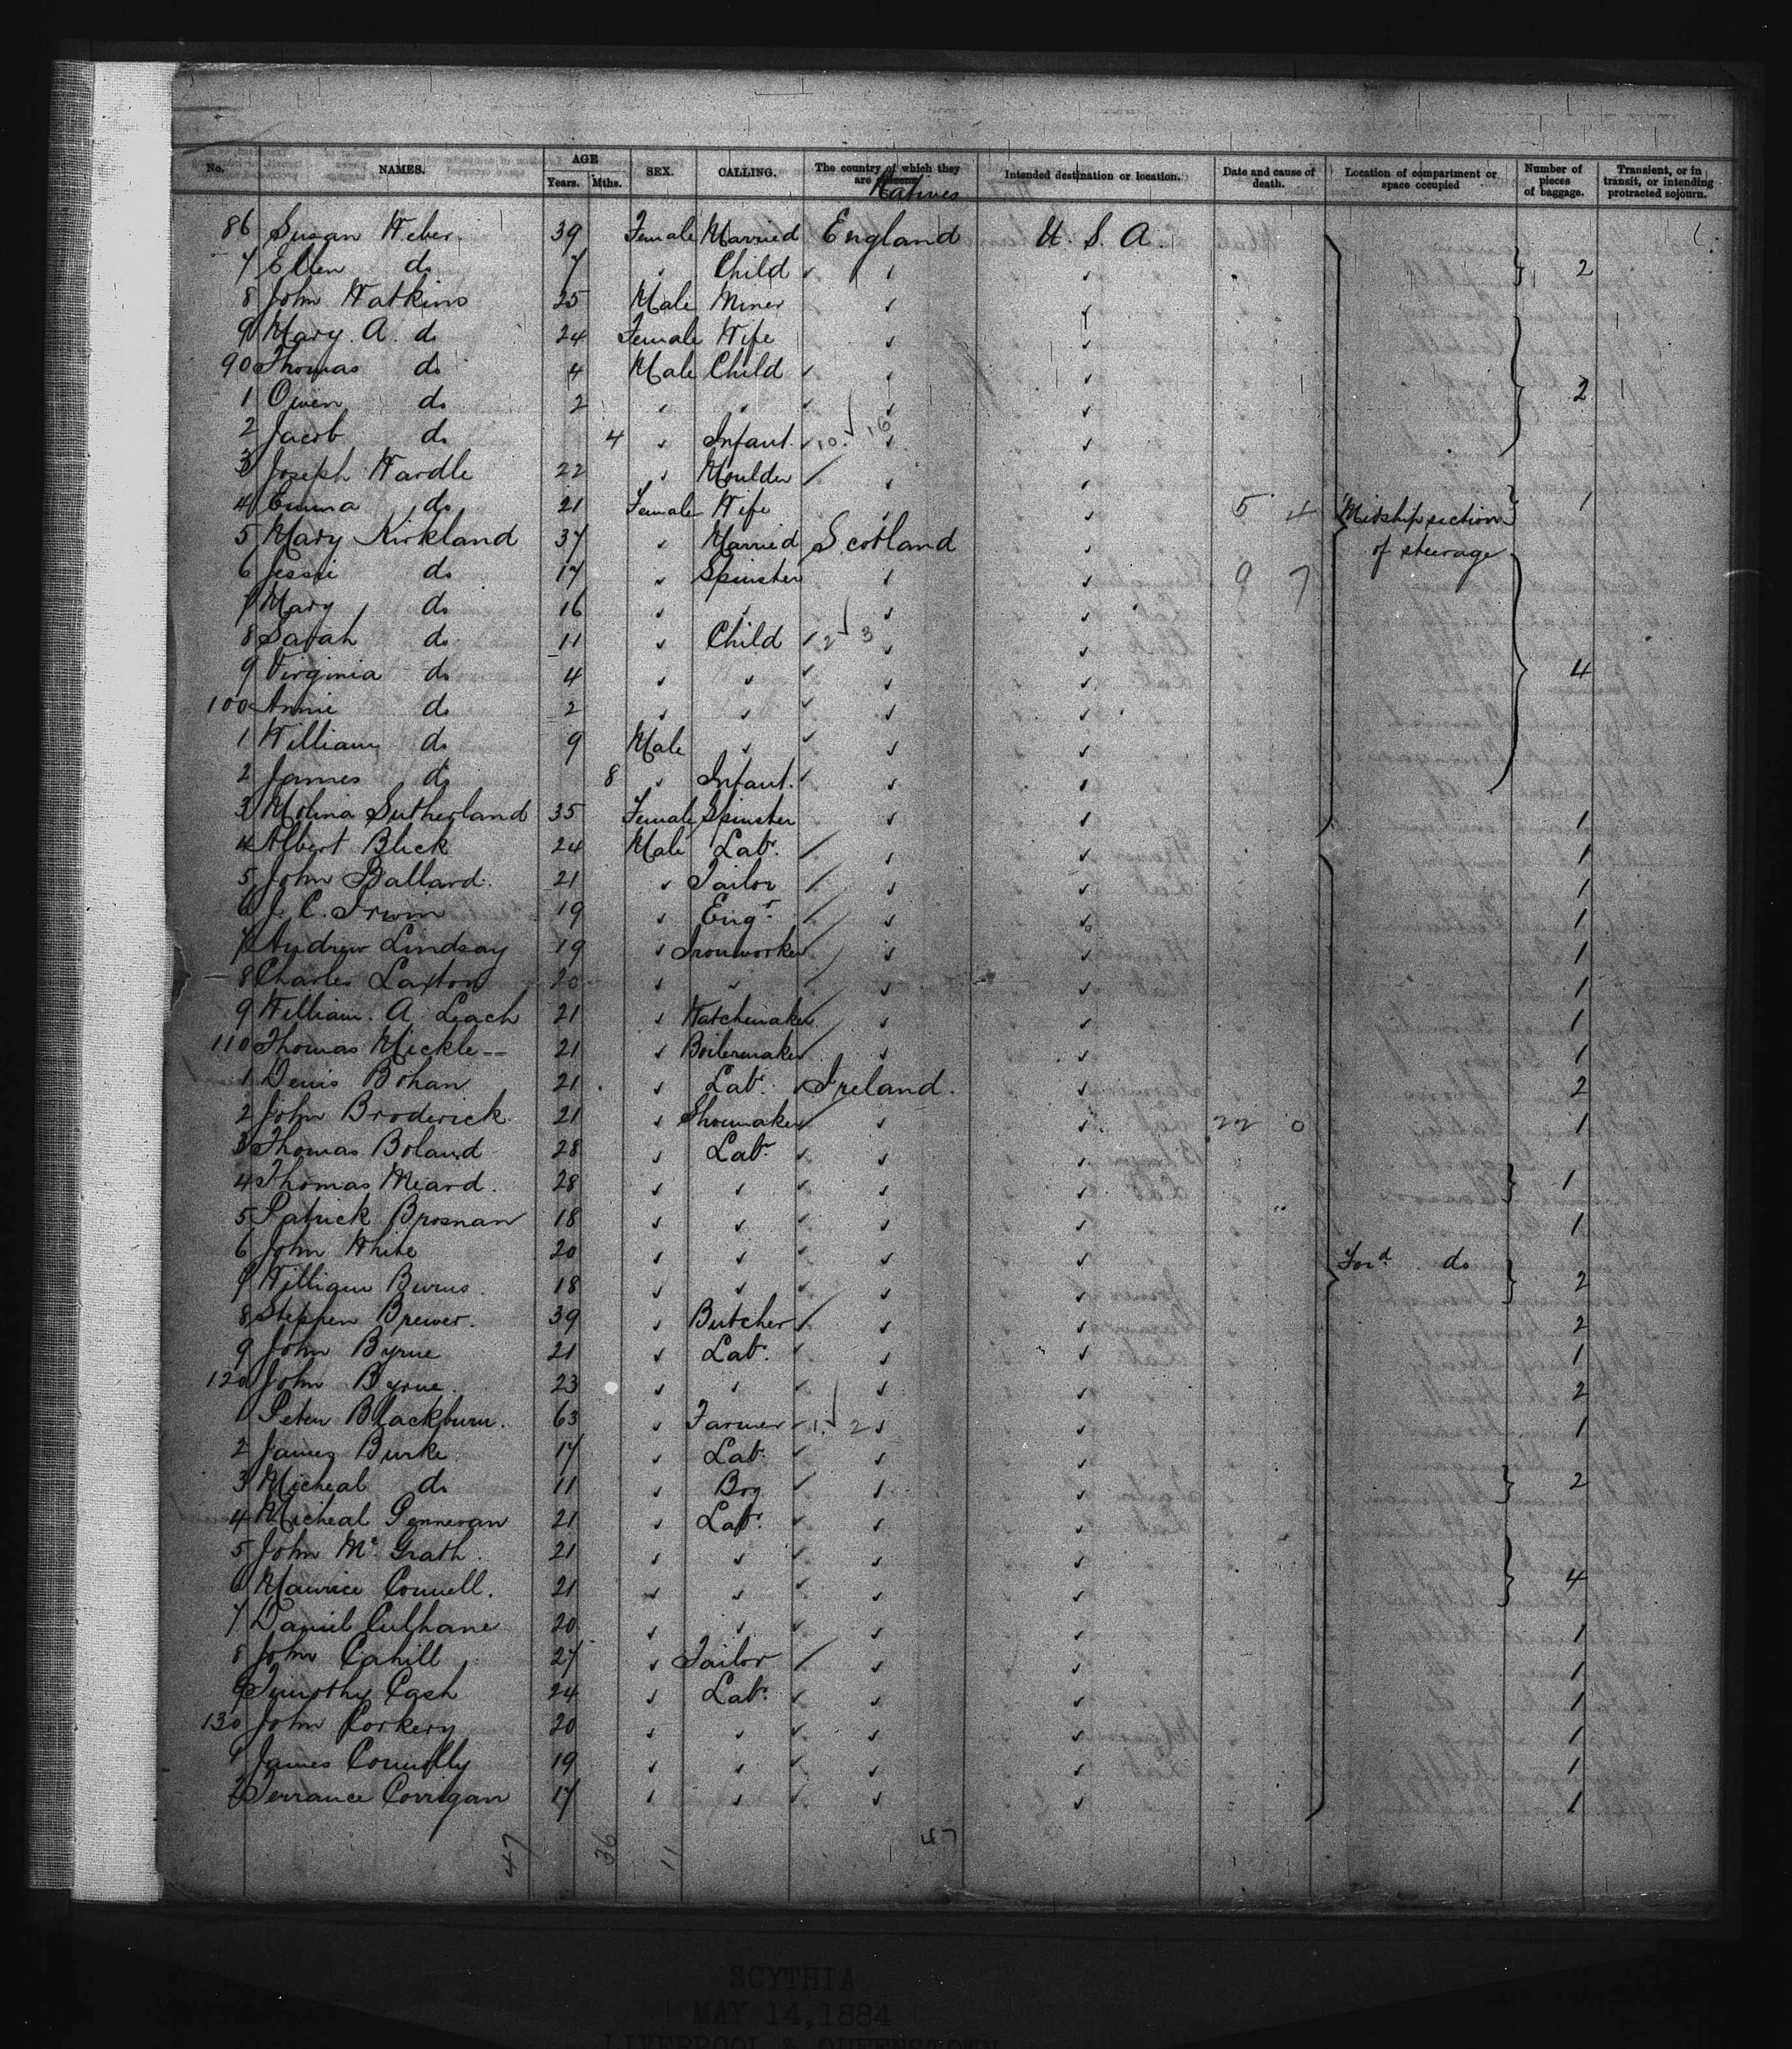 No. NAMES. AGE Years. Mths. SEX. CALLING. The country of which they are Natives Intended destination or location. Date and cause of death. Location of compartment or space occupied Number of pieces of baggage. Transient, or in transit, or intending protracted sojourn.
86 Susan Weber. 39 Female Married England U. S. A.
7 Ellen do 7 " Child " " 2
8 John Watkins 25 Male Miner " "
9 Mary. A. do 24 Female Wife " "
90 Thomas do 4 Male Child " "
1 Owen do 2 " " " " 2
2 Jacob do 4 " Infant. 10 16 " "
3 Joseph Wardle 22 " Moulder " "
4 Emma do 21 Female Wife " " 5 4 Midship section 1
5 Mary Kirkland 37 " Married Scotland " of steerage
6 Jessie do 17 " Spinster " " 9 7
7 Mary do 16 " " " "
8 Sarah do 11 " Child 2 3 " "
9 Virginia do 4 " " " " 4
100 Annie do 2 " " " "
1 William do 9 Male " " "
2 James do 8 " Infant. " "
3 Molina Sutherland 35 Female Spinster " " 1
4 Albert Blick 24 Male Labr. " " 1
5 John Ballard. 21 " Tailor " " 1
6 J. C. Irwin 19 " Engr. " " 1
7 Andrew Lindsay 19 " Ironworker " " 1
8 Charles Laxton 20 " " " " 1
9 William. A. Leach 21 " Watchmaker " " 1
110 Thomas Mickle -- 21 " Boilermaker " " 1
1 Denis Bohan 21 " Labr. Ireland. " 2
2 John Broderick 21 " Shoemaker " " 22 0 1
3 Thomas Boland 28 " Labr. " "
4 Thomas Meard. 28 " " " " 1
5 Patrick Brosnan 18 " " " " 1
6 John White 20 " " " " Ford. do
7 William Burns. 18 " " " " 2
8 Stephen Brewer. 39 " Butcher " " 2
9 John Byrne 21 " Labr. " " 1
120 John Byrne. 23 " " " " 2
1 Peter Blackburn. 63 " Farmer 1 2 " " 1
2 James Burke 17 " Labr. " "
3 Micheal do 11 " Boy " " 2
4 Micheal 21 " Labr. " "
5 John Mc. Grath. 21 " " " "
6 Maurice Connell. 21 " " " " 4
7 Daniel Culhane 20 " " " " 1
8 John Cahill 27 " Tailor " " 1
9 Timothy Cash 24 " Labr. " " 1
130 John Corkery 20 " " " " 1
1 James Connolly 19 " " " " 1
2 Terrance Corrigan 17 " " " " 1
47 36 11 47
SCYTHIA
MAY 14, 1884
LIVERPOOL & QUEENSTOWN